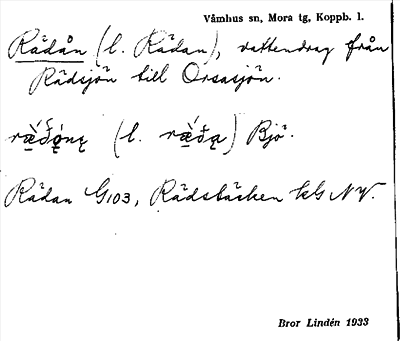 Våmhus sn, Mora tg, Koppb. l.
Rädån (l. Rädan), vattendrag från
Rädsjön till Orsasjön.
(l. Bjö.
Rädan G103, Rädsbäcken kG NV.
Bror Lindén 1933